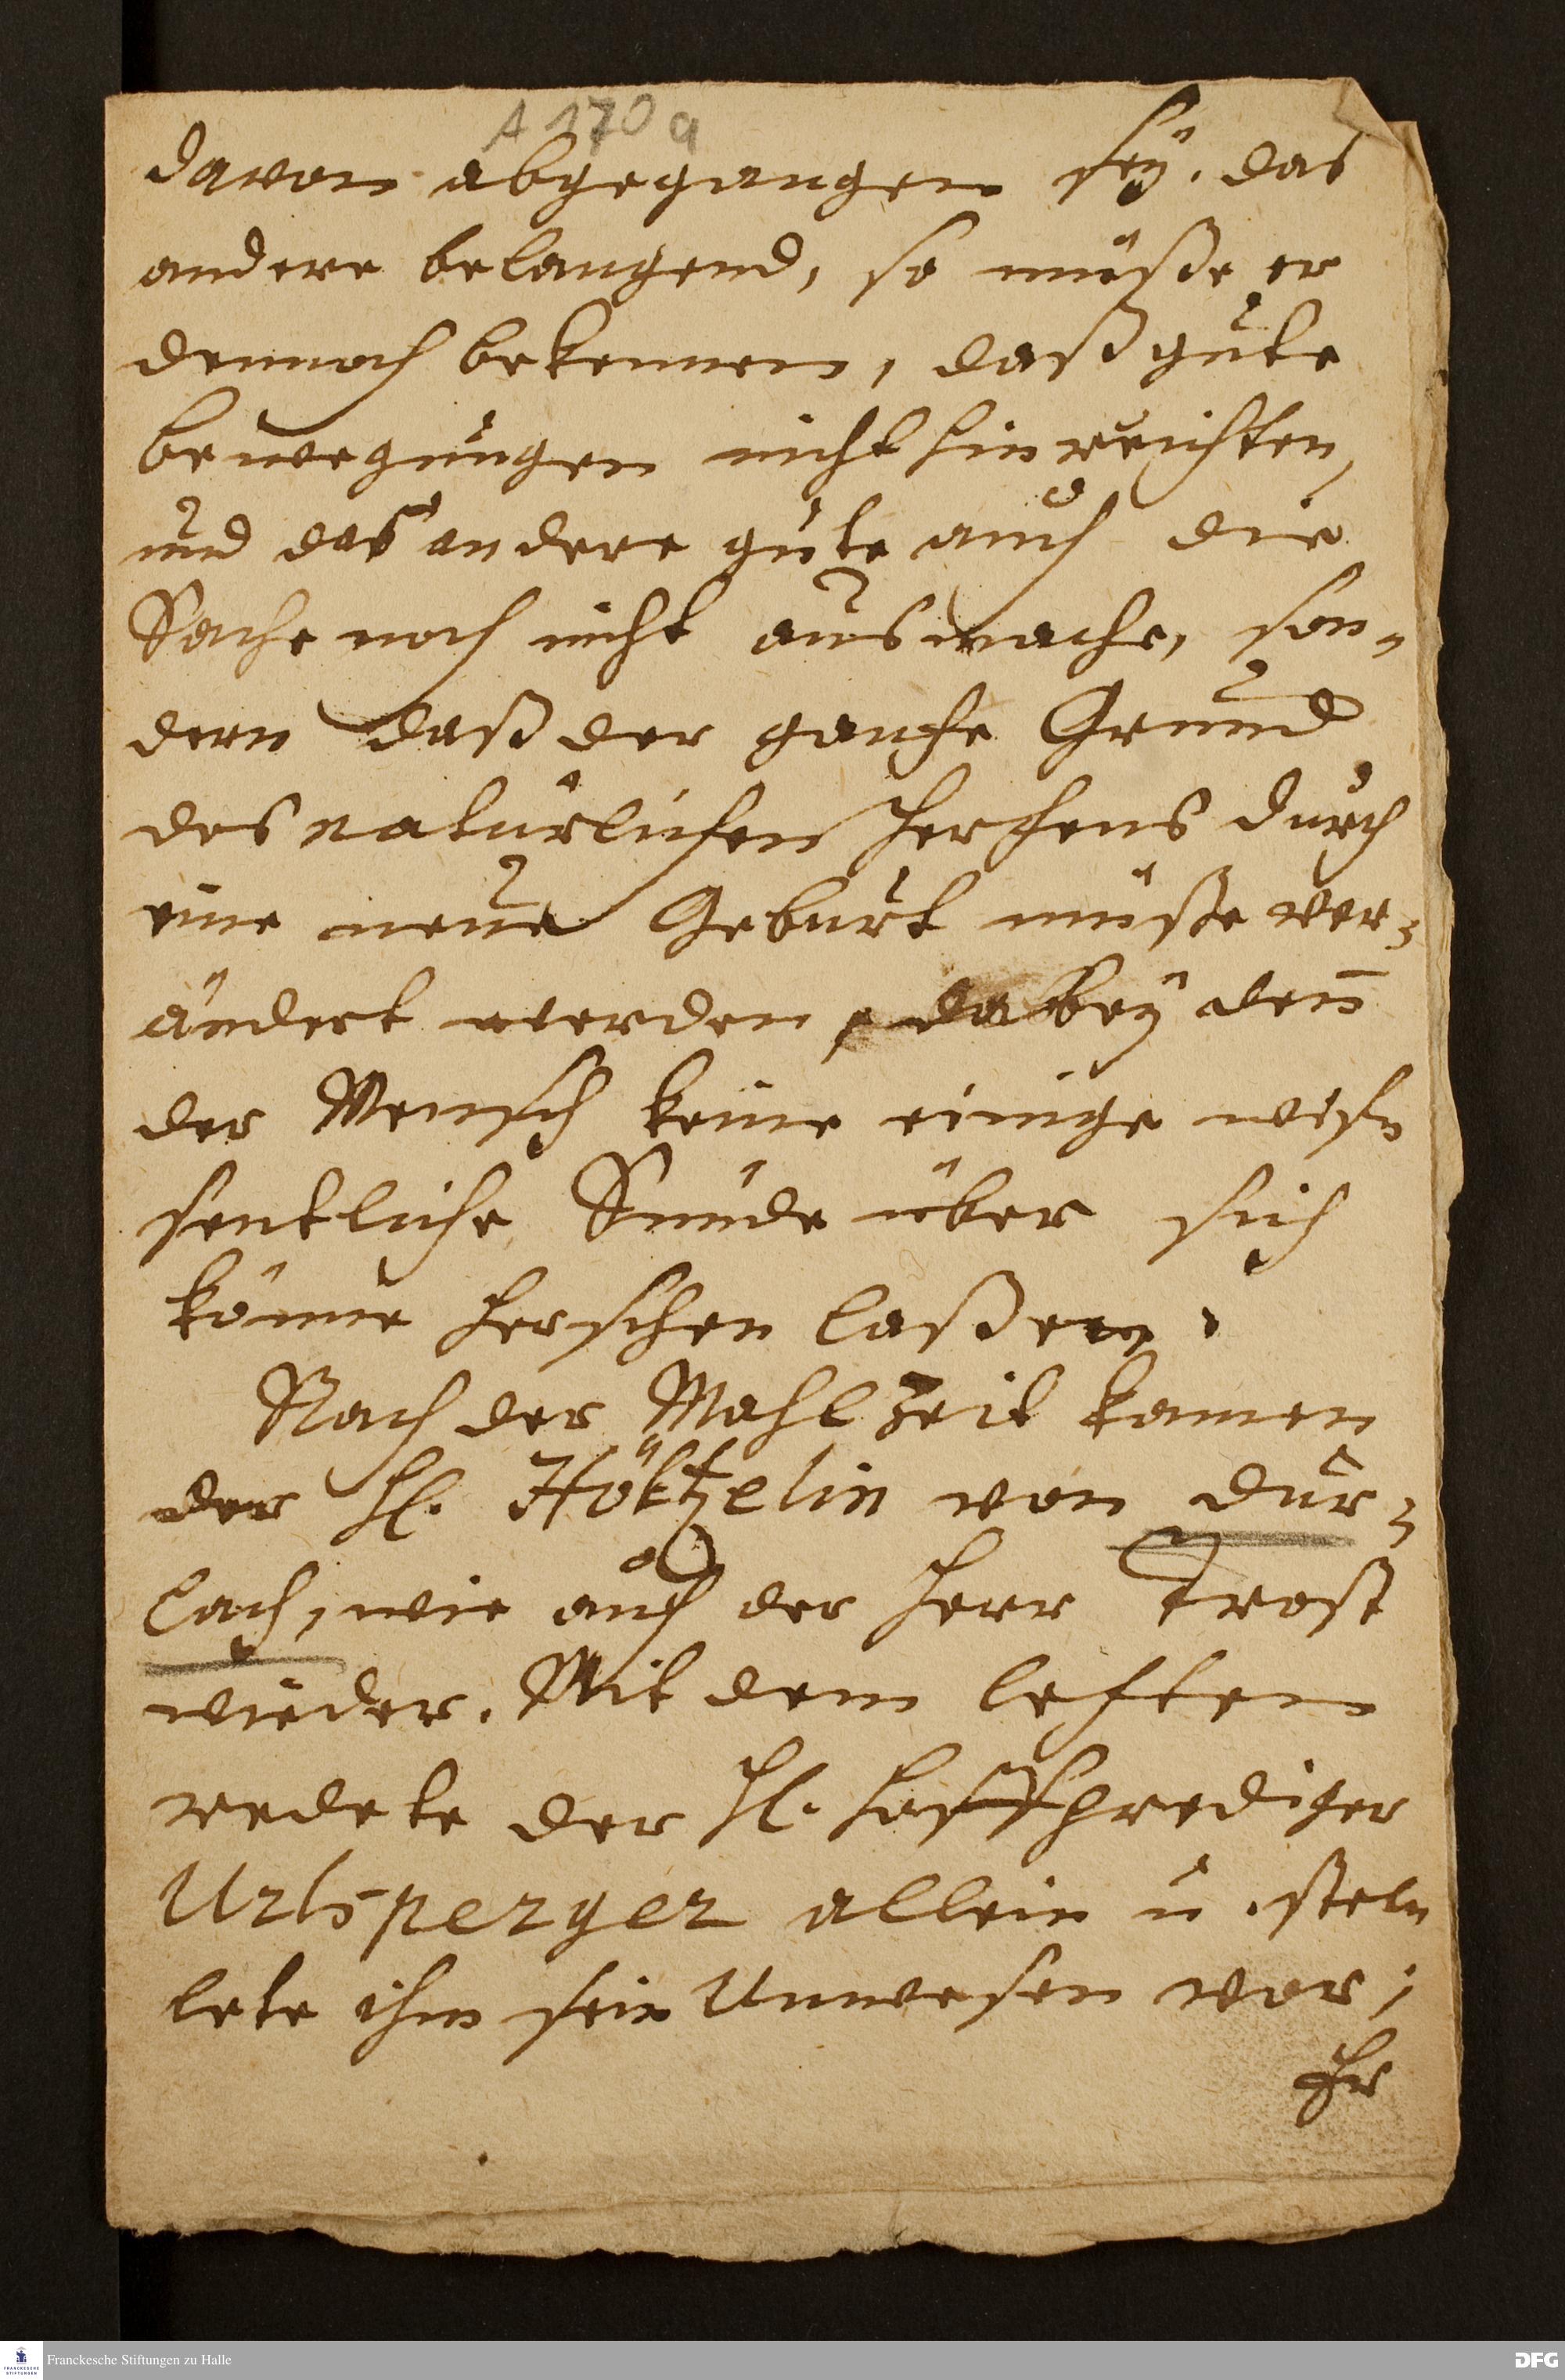 A 170 a
davon abgegangen seÿ. das
andere belangend, so müße er
dennoch bekennen, daß gute
bewegungen nicht hinreichten,
und das andere gute auch die
Sache noch nicht ausmache, son-
dern daß der gantze Grund
des natürlichen Hertzens durch
eine neue Geburt müße ver-
ändert werden, dabeÿ den̄
der Mensch keine einige wis-
sentliche Sünde über sich
könne herschen laßen.
Nach der Mahlzeit kamen
der H. Höltzelin von Dur-
lach, wie auch der Herr Trost
wieder. Mit dem letzten
redete der H. Hoffprediger
Urlsperger allein u. stel-
lete ihm sein Unwesen vor;
Er
Franckesche Stiftungen zu Halle
FRANCKESCHE
STIFTUNGEN
DFG